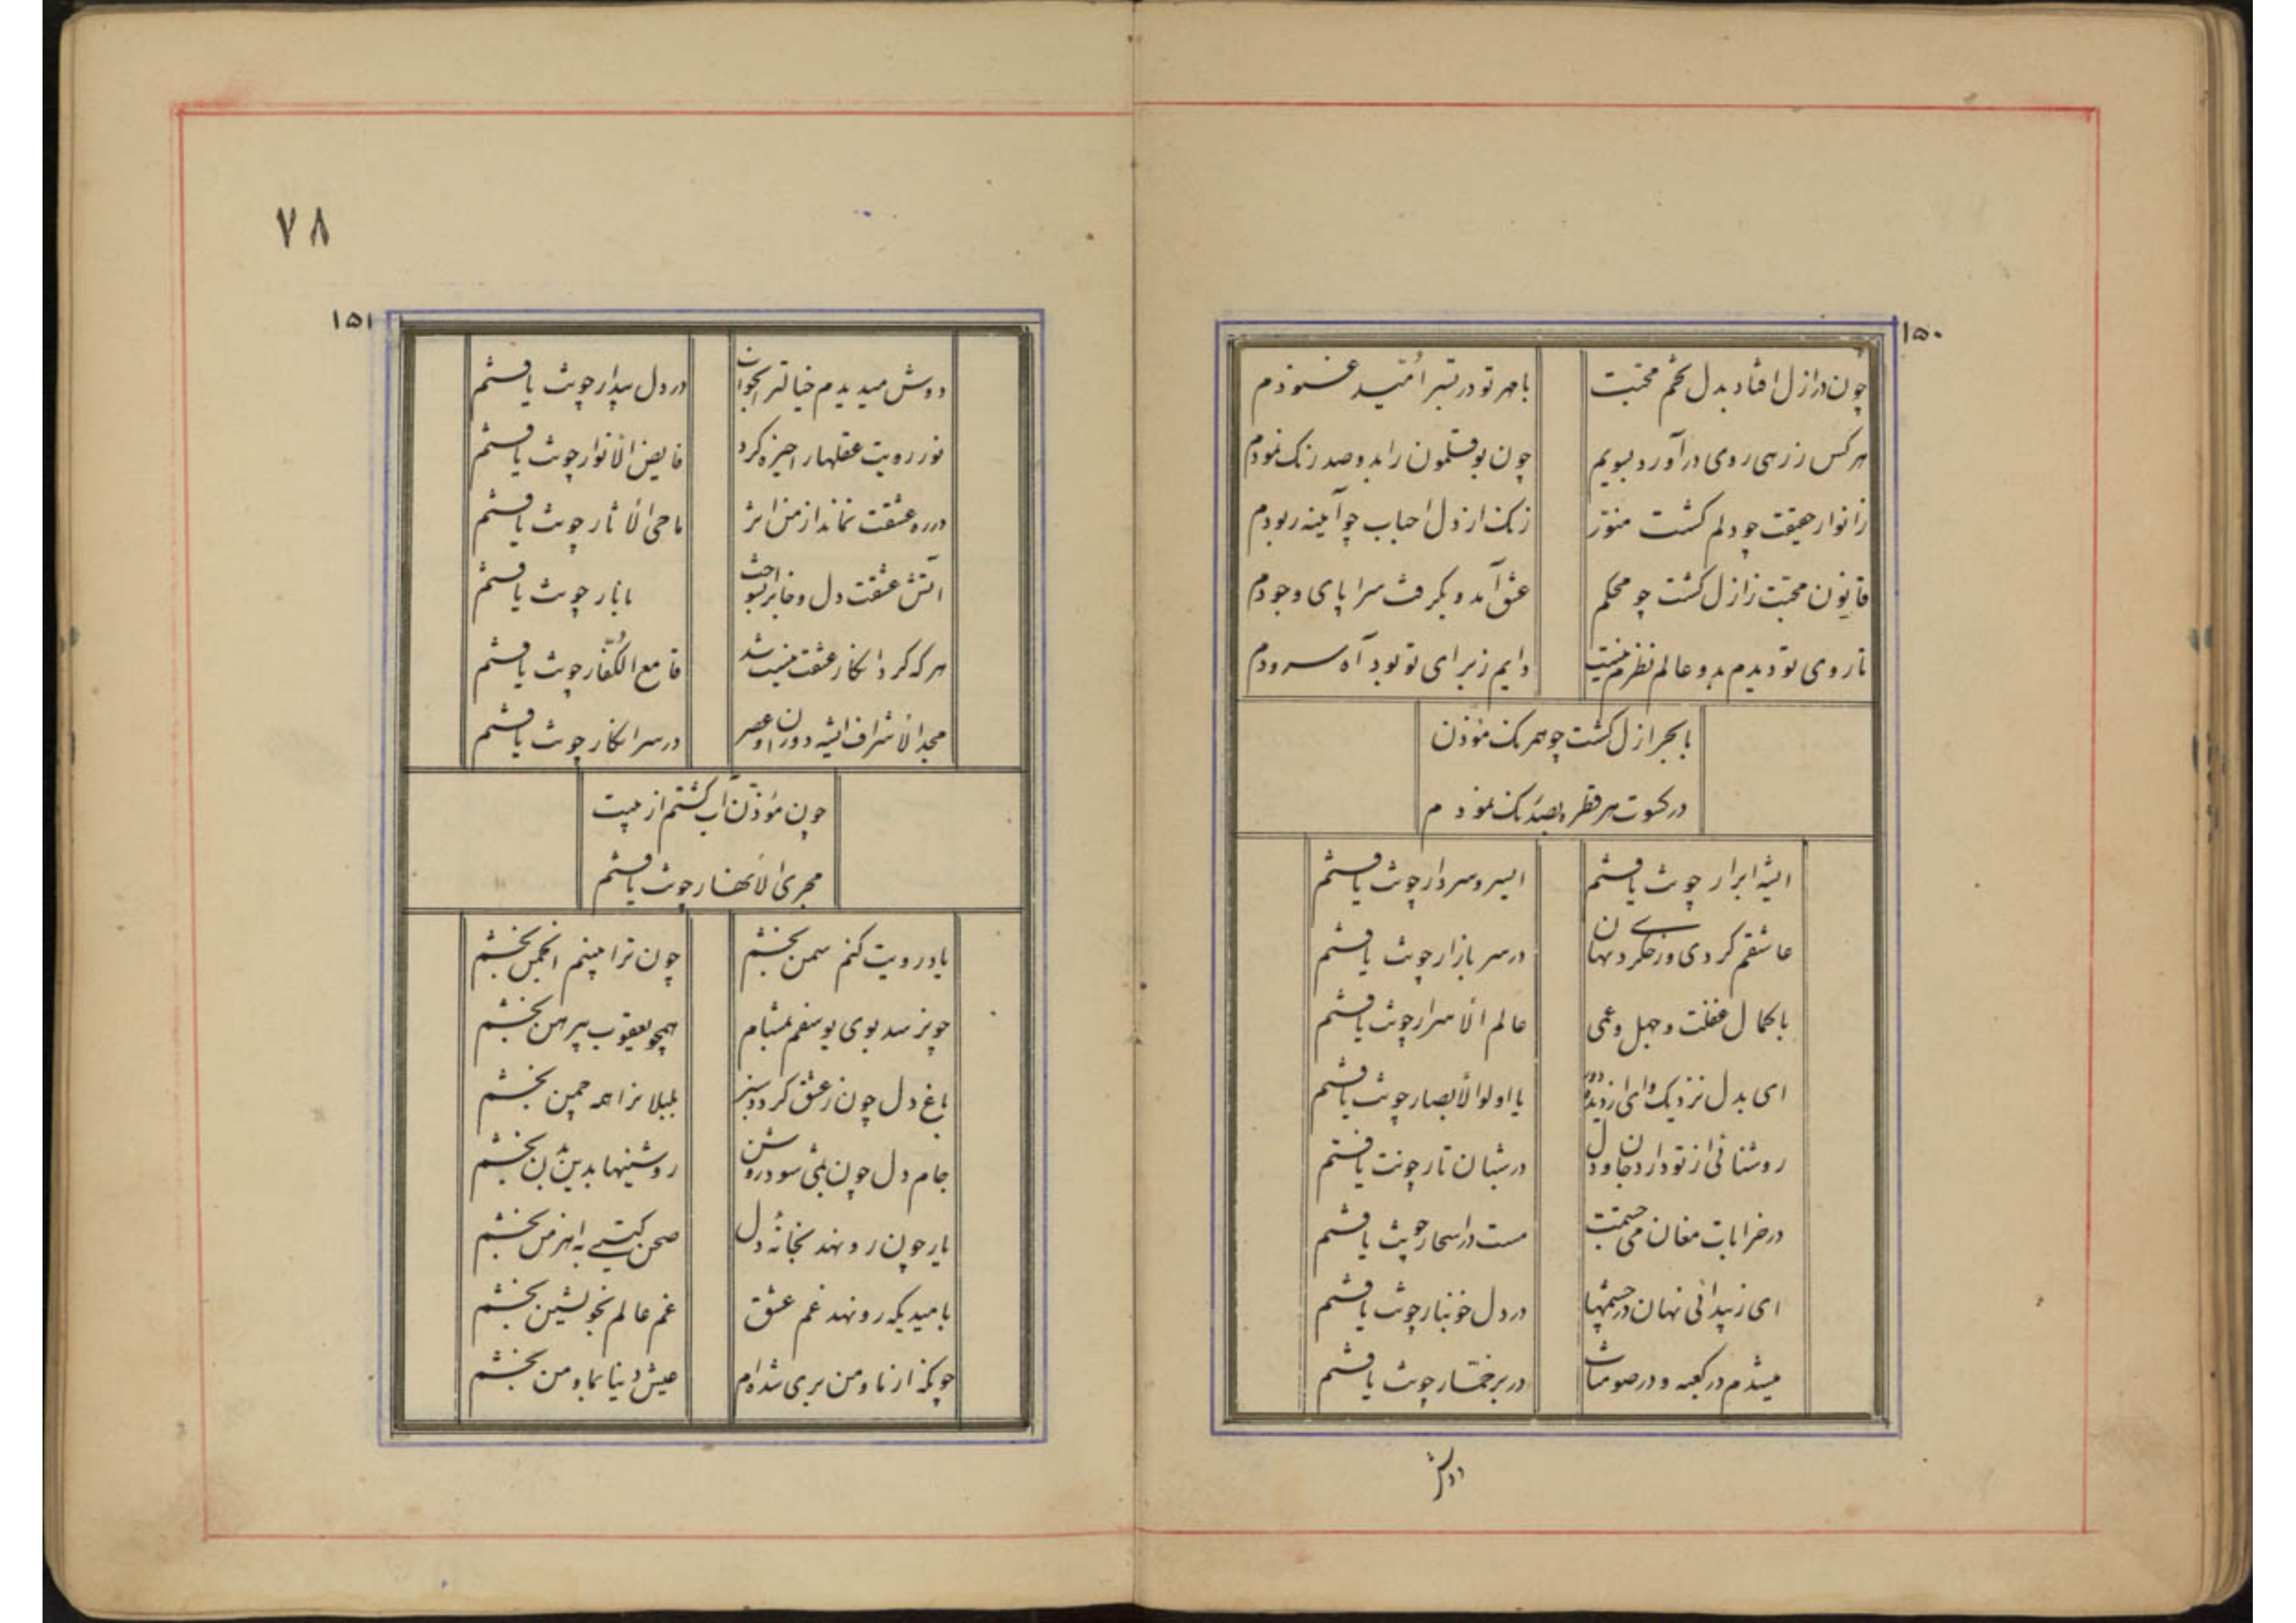 ۱۵۰
چون در ازل افتاد بدل تخم محبت
با مهر تو در بستر امّید غنودم
هر کس ز رهی روی در آورد بسویم
چون بوقلمون را بدو صد رنگ نمودم
ز انوار حقیقت چو دلم گشت منوّر
زنگ از دل احباب چو آیینه ربودم
قانون محبّت ز ازل گشت چو محکم
عشق آمد و بگرفت سراپای وجودم
تا روی تو دیدم بدو عالم نظرم نیست
دایم ز برای تو بود آه سرودم
با بحر ازل گشت چو همرنگ مؤذن
در کسوت هر قطره بصد رنگ نمودم
ای شه ابرار چونت یافتم
ای سر و سردار چونت یافتم
عاشقم کردی و رخ کردی نهان
در سر بازار چونت یافتم
با کمال غفلت و جهل و عمی
عالم الأسرار چونت یافتم
ای بدل نزدیک و ای از دیده دور
یا اولوالأبصار چونت یافتم
روشنائی از تو دارد جان و دل
در شبان تار چونت یافتم
در خرابات مغان می جستمت
مست در اسحار چونت یافتم
ای ز پیدائی نهان در چشمها
در دل خونبار چونت یافتم
میشدم در کعبه و در صومنات
در بر خمّار چونت یافتم
دوش
۷۸
۱۵۱
دوش میدیدم خیالت را بخواب
در دل بیدار چونت یافتم
نور رویت عقلها را خیره کرد
فایض الأنوار چونت یافتم
در ره عشقت نماند از من اثر
ماحی الأثار چونت یافتم
آتش عشقت دل و جانرا بسوخت
با نار چونت یافتم
هر که کرد انکار عشقت نیست شد
قامع الکفّار چونت یافتم
مجد الأشراف ای شه دوران و عصر
در سر انکار چونت یافتم
چون مؤذّن آب گشتم از هیبت
مجری الأنهار چونت یافتم
یاد رویت کنم سمن بخشم
چون ترا بینم انجمن بخشم
چو برسد بوی یوسفم بمشام
همچو یعقوب پیرهن بخشم
باغ دل چون ز عشق گردد سبز
بلبلانرا همه چمن بخشم
جام دل چون بمی شود روشن
روشنیها بدین بدن بخشم
یار چون رو نهد بخانهٔ دل
صحن گیتی به اهرمن بخشم
با امیدیکه رو نهد غم عشق
غم عالم بخویشتن بخشم
چونکه از ما و من بری شده‌ام
عیش دنیا بما و من بخشم